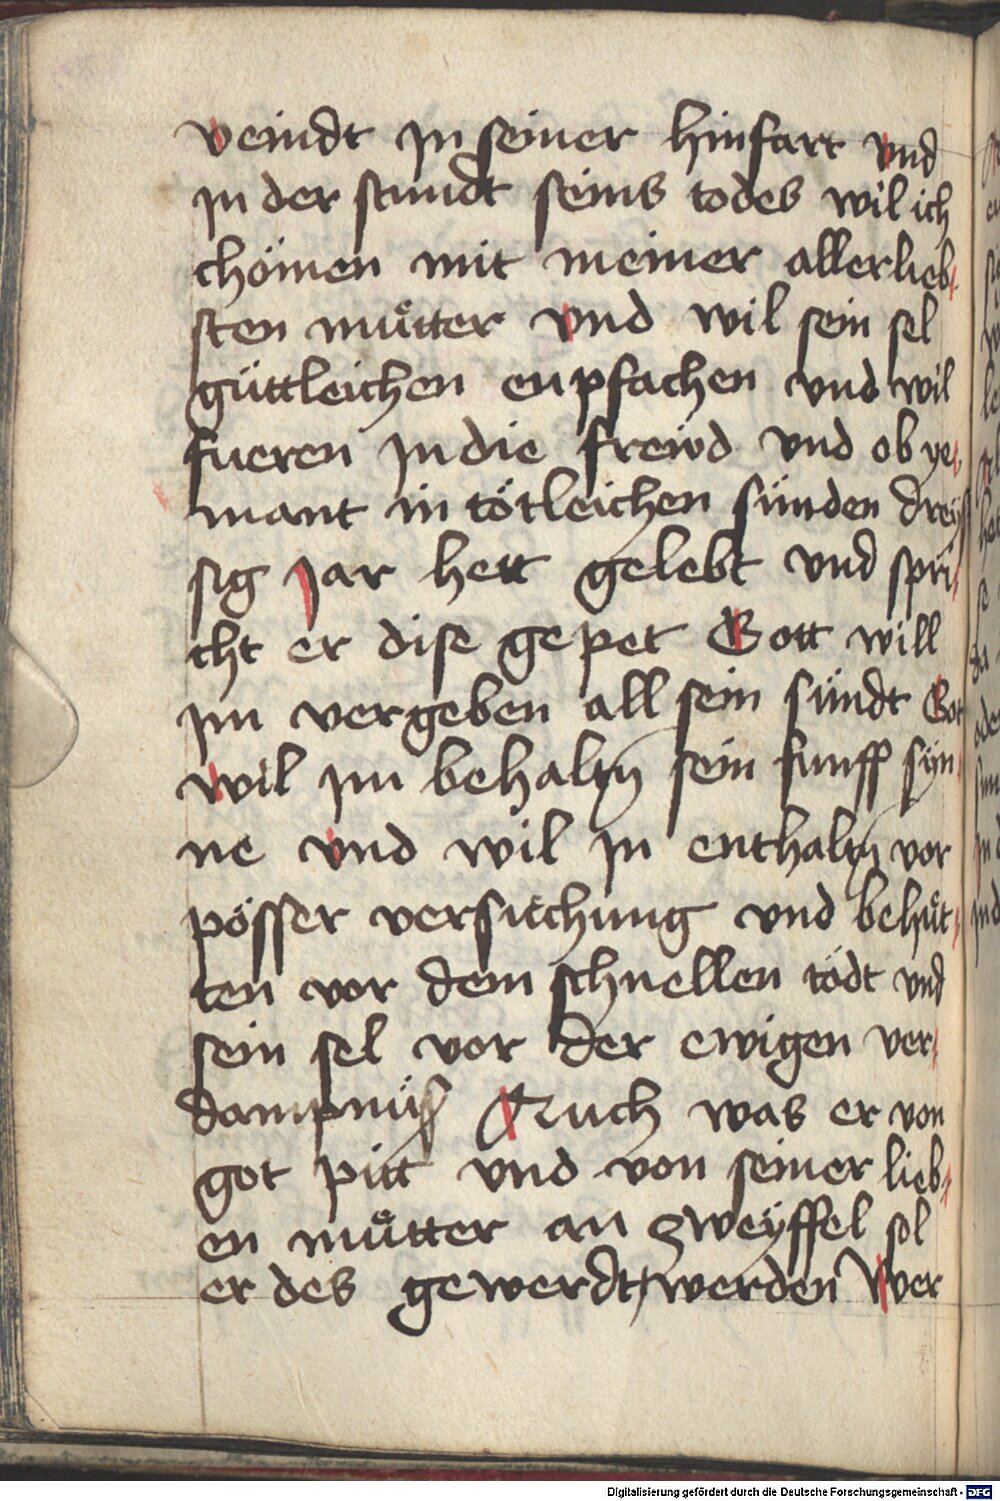 veindt in seiner hinfart vnd
in der stundt seins todes wil ich
chömen mit meiner allerlieb-
sten můtter vnd wil sein sel
güttleichen enpfachen vnd wil
fueren in die frewd vnd ob ye-
mant in tötleichen sünden dreys
sig jar hett gelebt vnd spri-
cht er dise gepet Gott will
im vergeben all sein sündt Got
wil im behaltn sein funff syn-
ne vnd wil in enthaltn vor
pösser versuchung vnd behüt-
ten vor dem schnellen tödt vnd
sein sel vor der ewigen ver-
dampnüß Auch was er von
got pitt vnd von seiner lieb-
en můtter an zweyffel sol
er des gewerdt werden Wer
Digitalisierung gefördert durch die Deutsche Forschungsgemeinschaft - DFG